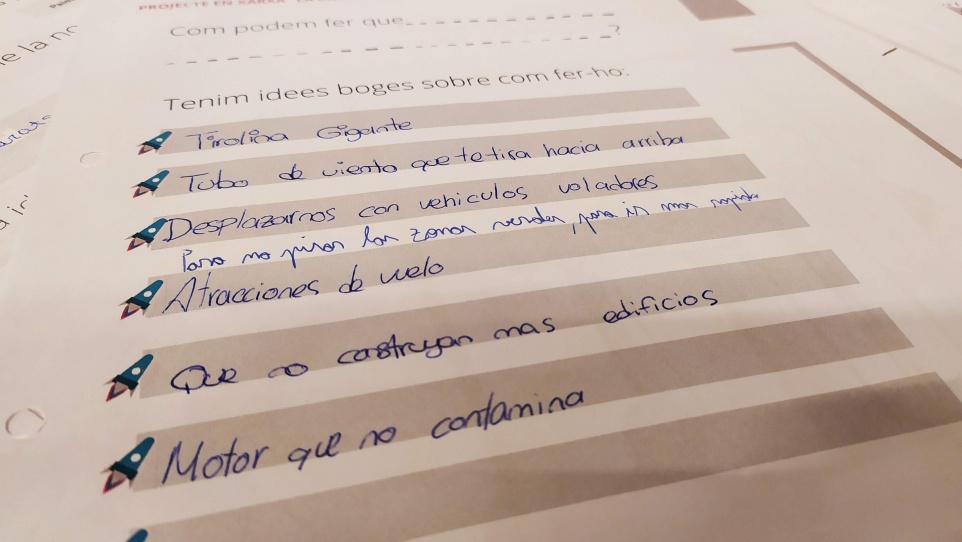 PROJECTE EN XARXA
Com podem fer que
?
Tenim idees boges sobre com fer-ho:
Tirolina Gigante
Tubo de viento que te tira hacia arriba
Desplazarnos con vehiculos voladores
Para no pisar las zonas verdes, para ir mas rapido
Atracciones de vuelo
Que no construyan mas edificios
Motor que no contamina